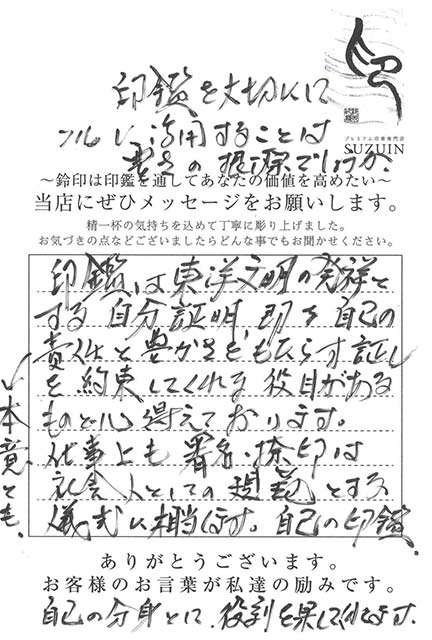 印
プレミアム印章専門店
SUZUIN
印鑑を大切に
フルに活用することは
〜鈴印は印鑑を通してあなたの価値を高めたい〜
当店にぜひメッセージをお願いします。
精一杯の気持ちを込めて丁寧に彫り上げました。
お気づきの点などございましたらどんな事でもお聞かせください。
印鑑は東洋文明の発祥と
する自分証明、即ち自己の
責任と豊かさをもたらす証し
を約束してくれる役目がある
ものと心得えております。
仕事上も署名・捺印は
社会人としての規範とする
儀式に相当します。自己の印鑑
ありがとうございます。
お客様のお言葉が私達の励みです。
自己の分身とに、役割を果してくれます。